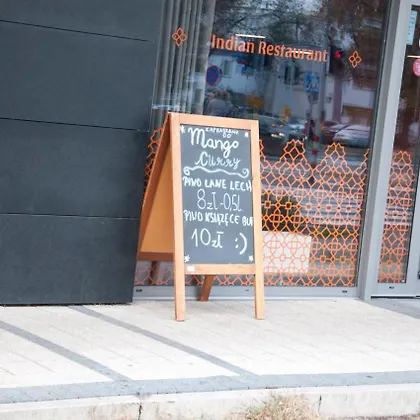 Indian Restaurant
ZAPRASZAMY
Mango
Curry
PIWO LANE LECH
8zł-0,5l
PIWO KSIĄŻĘCE
10zł :)